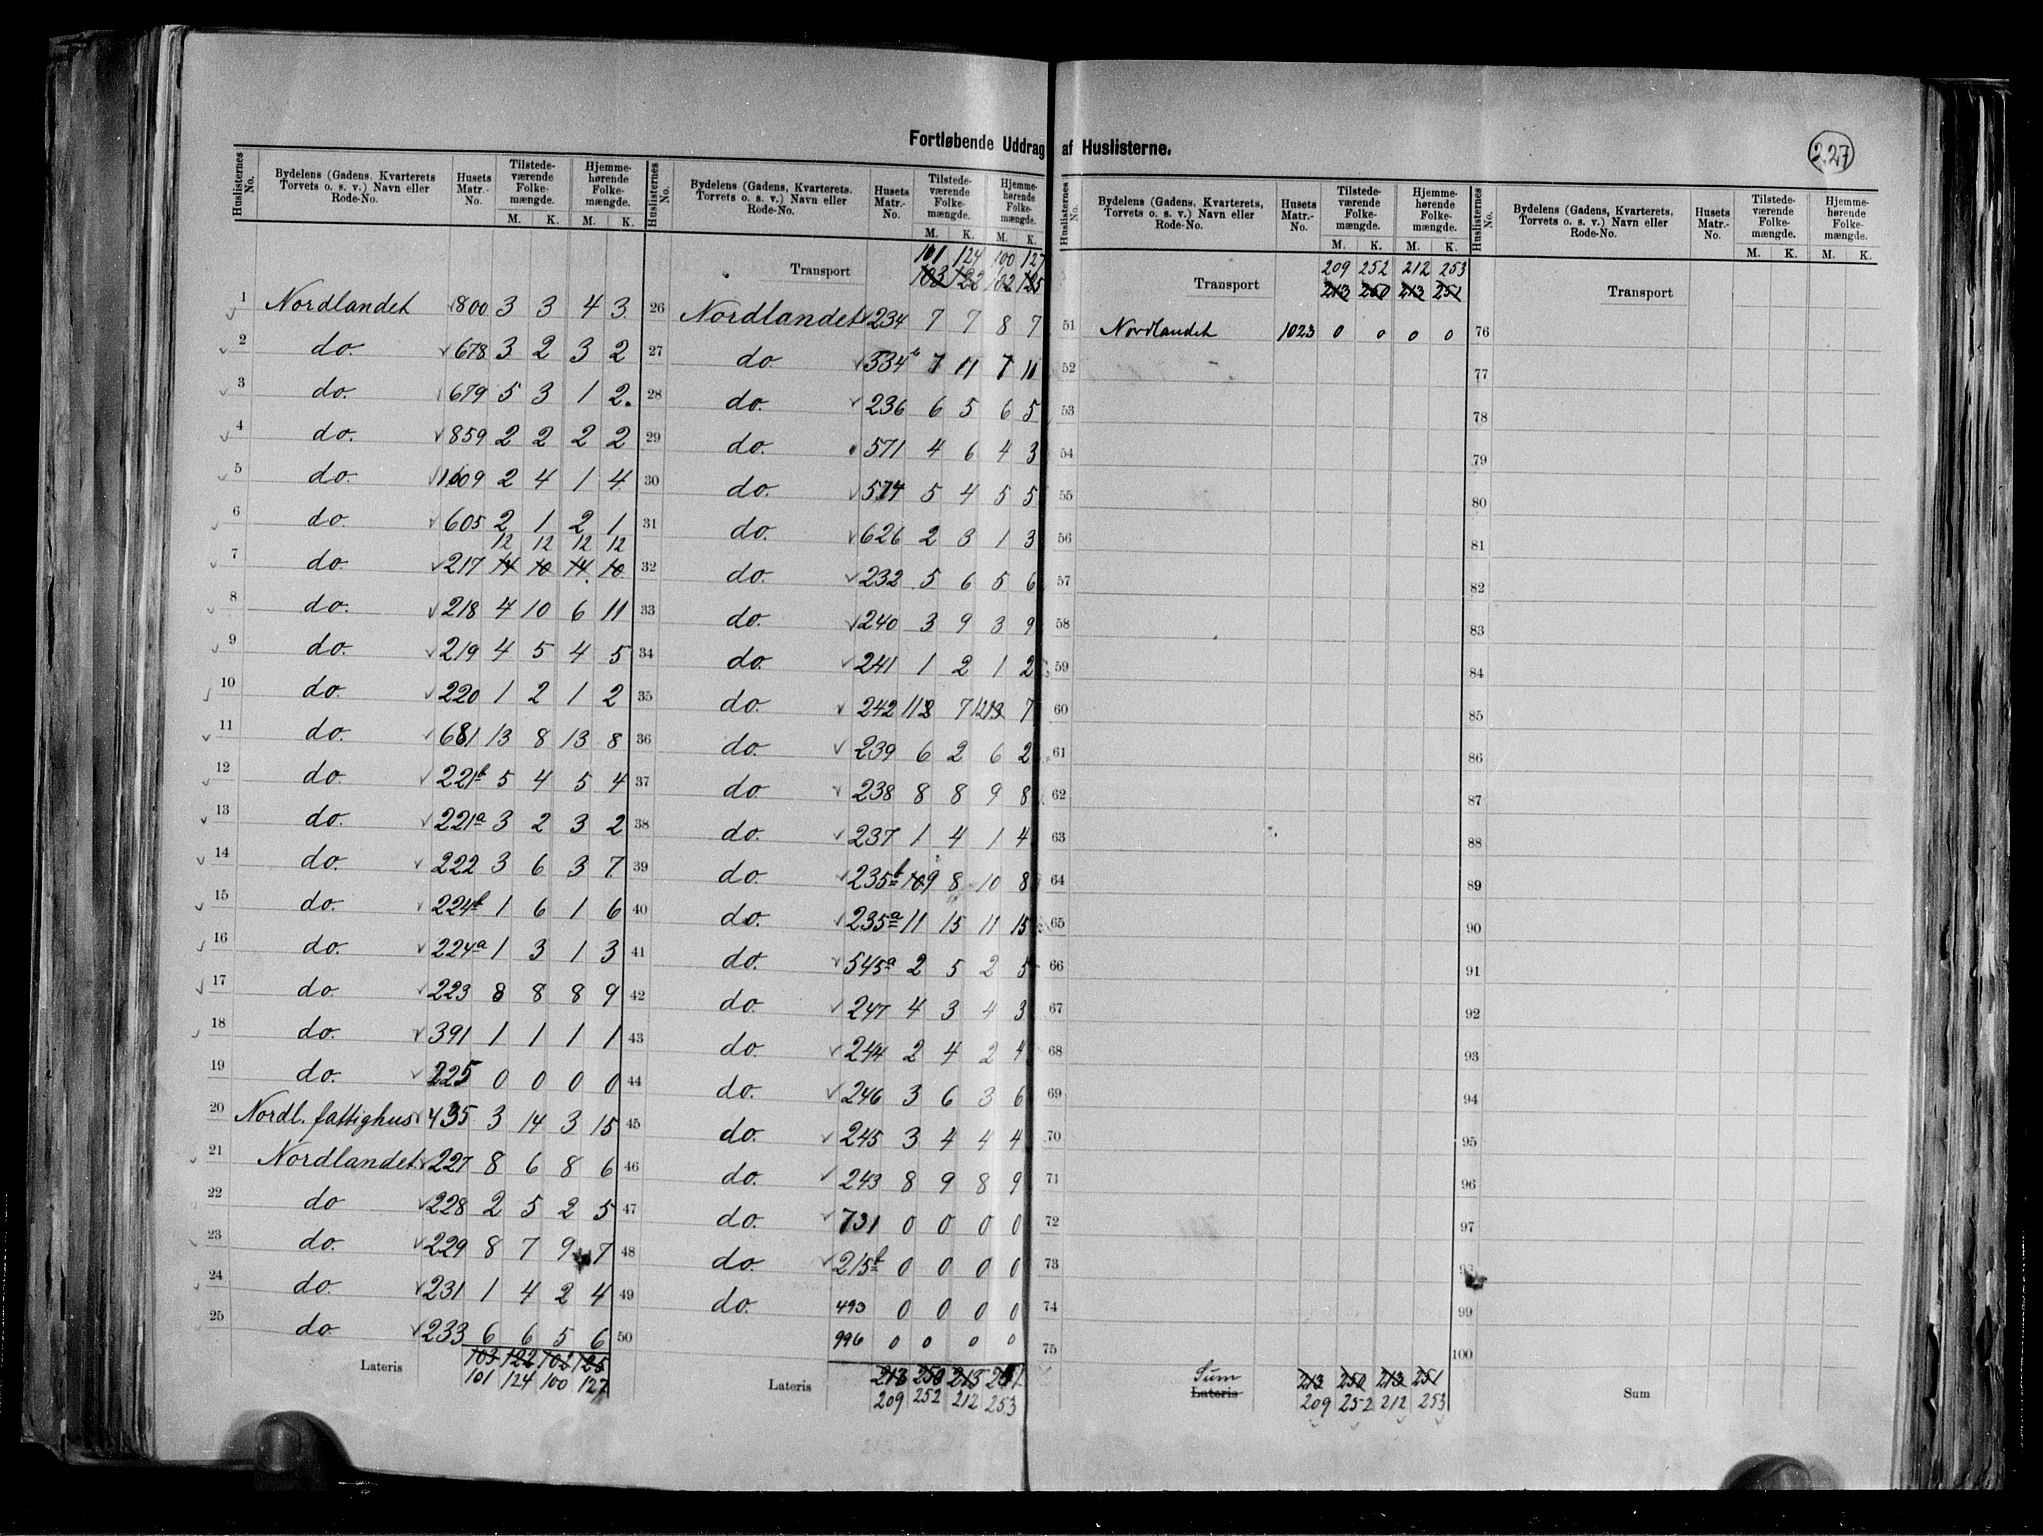 Fortløbende Uddrag af Huslisterne.
227
Huslisternes No. | Bydelens (Gadens, Kvarterets Torvets o. s. v.) Navn eller Rode-No. | Husets Matr.-No. | Tilstedeværende Folkemængde. M. K. | Hjemmehørende Folkemængde. M. K.
1 Nordlandet 800 3 3 4 3
2 do. 678 3 2 3 2
3 do. 679 5 3 1 2
4 do. 859 2 2 2 2
5 do. 1009 2 4 1 4
6 do. 605 2 1 2 1
12 12 12 12
7 do. 217 14 10 14 10
8 do. 218 4 10 6 11
9 do. 219 4 5 4 5
10 do. 220 1 2 1 2
11 do. 681 13 8 13 8
12 do. 221b 5 4 5 4
13 do. 221a 3 2 3 2
14 do. 222 3 6 3 7
15 do. 224b 1 6 1 6
16 do. 224a 1 3 1 3
17 do. 223 8 8 8 9
18 do. 391 1 1 1 1
19 do. 225 0 0 0 0
20 Nordl. fattighus 435 3 14 3 15
21 Nordlandet 227 8 6 8 6
22 do 228 2 5 2 5
23 do. 229 8 7 9 7
24 do. 231 1 4 2 4
25 do 233 6 6 5 6
Lateris 103 122 102 125
101 124 100 127
Huslisternes No. | Bydelens (Gadens, Kvarterets. Torvets o. s. v.) Navn eller Rode-No. | Husets Matr.-No. | Tilstedeværende Folkemængde. M. K. | Hjemmehørende Folkemængde. M. K.
101 124 100 127
Transport 103 122 102 125
26 Nordlandet 234 7 7 8 7
27 do. 534b 7 11 7 11
28 do. 236 6 5 6 5
29 do. 571 4 6 4 3
30 do. 574 5 4 5 5
31 do. 626 2 3 1 3
32 do. 232 5 6 5 6
33 do. 240 3 9 3 9
34 do. 241 1 2 1 2
35 do. 242 7 7
36 do. 239 6 2 6 2
37 do. 238 8 8 9 8
38 do. 237 1 4 1 4
39 do. 235b 10 9 8 10 8
40 do. 235a 11 15 11 15
41 do. 545a 2 5 2 5
42 do. 247 4 3 4 3
43 do. 244 2 4 2 4
44 do. 246 3 6 3 6
45 do. 245 3 4 4 4
46 do. 243 8 9 8 9
47 do. 731 0 0 0 0
48 do. 215b 0 0 0 0
49 do. 493 0 0 0 0
50 996 0 0 0 0
Lateris 213 250 213 251
209 252 212 253
Huslisternes No. | Bydelens (Gadens, Kvarterets, Torvets o. s. v.) Navn eller Rode-No. | Husets Matr.-No. | Tilstedeværende Folkemængde. M. K. | Hjemmehørende Folkemængde. M. K.
209 252 212 253
Transport 213 250 213 251
51 Nordlandet 1023 0 0 0 0
52
53
54
55
56
57
58
59
60
61
62
63
64
65
66
67
68
69
70
71
72
73
74
75
Sum
Lateris 213 250 213 251
209 252 212 253
Huslisternes No. | Bydelens (Gadens, Kvarterets, Torvets o. s. v.) Navn eller Rode-No. | Husets Matr.-No. | Tilstedeværende Folkemængde. M. K. | Hjemmehørende Folkemængde. M. K.
Transport
76
77
78
79
80
81
82
83
84
85
86
87
88
89
90
91
92
93
94
95
96
97
98
99
100
Sum